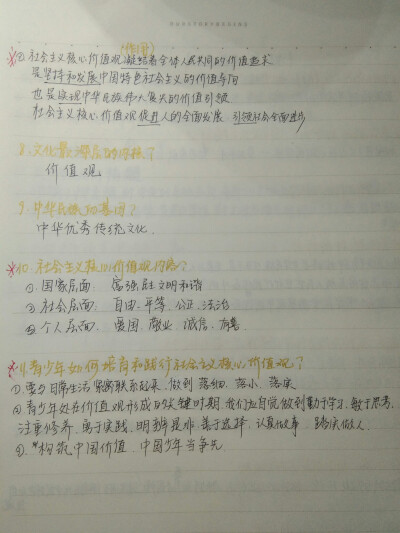 (作用)
※⑧社会主义核心价值观凝结着全体人民共同的价值追求
是坚持和发展中国特色社会主义的价值导向
也是实现中华民族伟大复兴的价值引领
社会主义核心价值观促进人的全面发展 引领社会全面进步
8.文化最深层的内核?
价值观
9.中华民族的基因?
中华优秀传统文化.
※10.社会主义核心价值观内容?
①国家层面: 富强民主文明和谐
②社会层面: 自由.平等.公正.法治
③个人层面: 爱国.敬业.诚信.友善
※11.青少年如何培育和践行社会主义核心价值观?
①.要与日常生活紧密联系起来.做到落细.落小.落实
②青少年处在价值观形成的关键时期.我们应自觉做到勤于学习.敏于思考,
注重修养.勇于实践.明辨是非.善于选择.认真做事.踏实做人.
③.构筑中国价值 中国少年当争先.